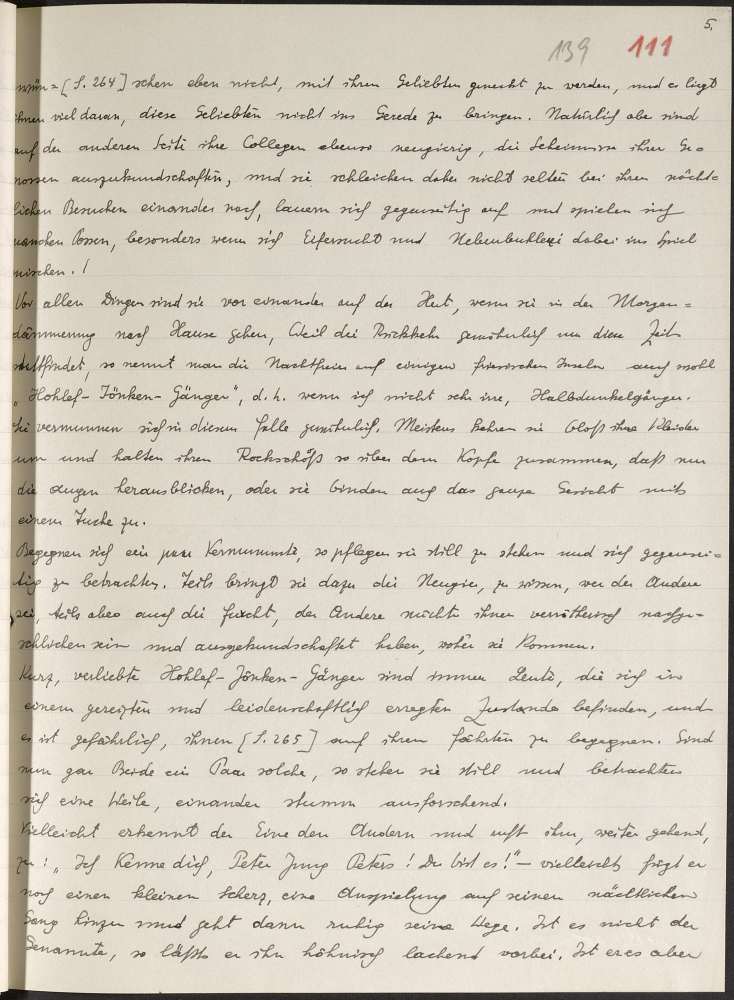 5.
139 111
wün=[S. 264] schen eben nicht, mit ihren Geliebten geneckt zu werden, und es liegt
ihnen viel daran, diese Geliebten nicht ins Gerede zu bringen. Natürlich aber sind
auf der anderen Seite ihre Collegen ebenso neugierig, die Geheimnisse ihrer Ge=
nossen auszukundschaften, und sie schleichen daher nicht selten bei ihren nächt=
lichen Besuchen einander nach, lauern sich gegenseitig auf und spielen sich
manchen Possen, besonders wenn sich Eifersucht und Nebenbuhlerei dabei ins Spiel
mischen. !
Vor allen Dingen sind sie vor einander auf der Hut, wenn sie in der Morgen=
dämmerung nach Hause gehen. Weil die Rückkehr gewöhnlich um diese Zeit
stattfindet, so nennt man die Nachtfreier auf einigen friesischen Inseln auch wohl
„Hohlef-Jönken-Gänger", d.h. wenn ich nicht sehr irre, Halbdunkelgänger.
Sie vermummen sich in diesem Falle gewöhnlich. Meistens kehren sie bloß ihre Kleider
um und halten ihren Rockschoß so über dem Kopfe zusammen, daß nur
die Augen herausblicken, oder sie binden auch das ganze Gesicht mit
einem Tuche zu.
Begegnen sich ein paar Vermummte, so pflegen sie still zu stehen und sich gegensei=
tig zu betrachten. Teils bringt sie dazu die Neugier, zu wissen, wer der Andere
sei, teils aber auch die Furcht, der Andere möchte ihnen verrätherisch nachge=
schlichen sein und ausgekundschaftet haben, woher sie kommen.
Kurz, verliebte Hohlef-Jönken-Gänger sind immer Leute, die sich in
einem gereizten und leidenschaftlich erregten Zustande befinden, und
es ist gefährlich, ihnen [S. 265] auf ihren Fährten zu begegnen. Sind
nun gar Beide ein Paar solche, so stehen sie still und betrachten
sich eine Weile, einander stumm ausforschend.
Vielleicht erkennt der Eine den Andern und ruft ihm, weiter gehend,
zu: „Ich kenne dich, Peter Jung Peters! Du bist es!" – vielleicht fügt er
noch einen kleinen Scherz, eine Anspielung auf seinen nächtlichen
Gang hinzu und geht dann ruhig seine Wege. Ist es nicht der
Genannte, so läßts er ihn höhnisch lachend vorbei. Ist er es aber